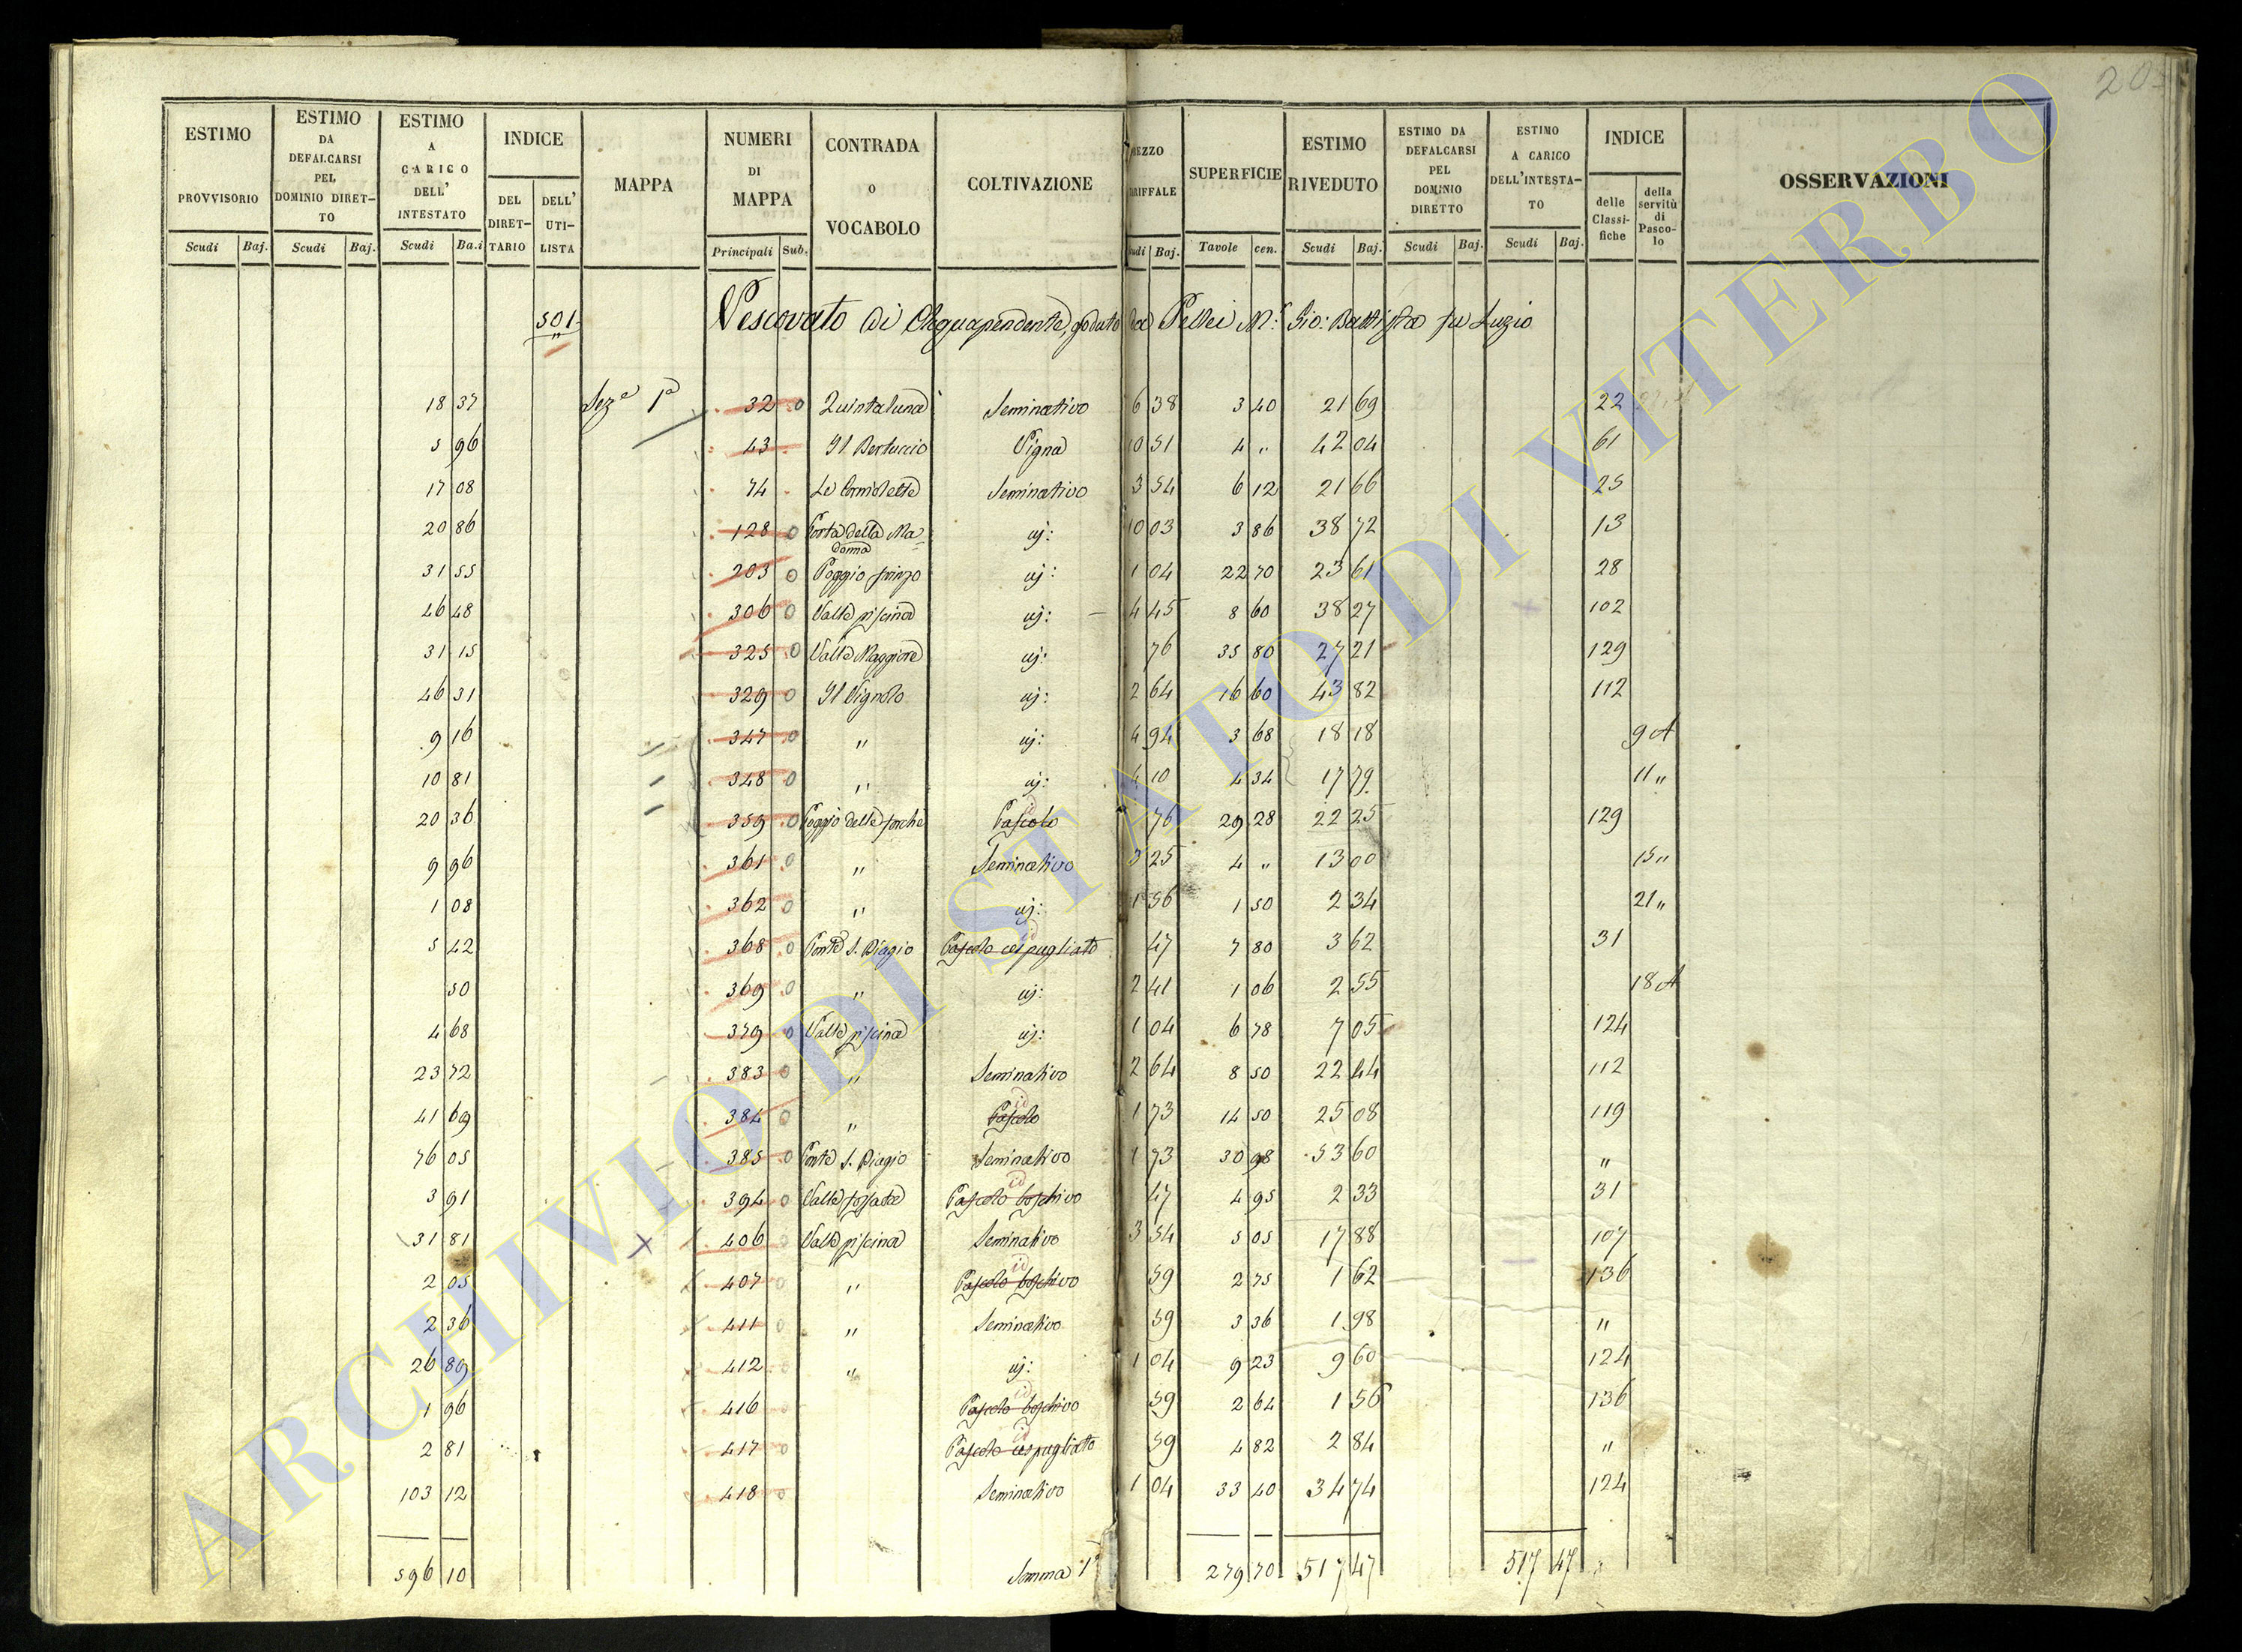 20
ESTIMO PROVVISORIO Scudi Baj. ESTIMO DA DEFALCARSI PEL DOMINIO DIRETTO Scudi Baj. ESTIMO A CARICO DELL' INTESTATO Scudi Ba.i INDICE DEL DIRETTARIO DELL' UTILISTA MAPPA NUMERI DI MAPPA Principali Sub. CONTRADA O VOCABOLO COLTIVAZIONE EZZO RIFFALE udi Baj. SUPERFICIE Tavole cen. ESTIMO RIVEDUTO Scudi Baj. ESTIMO DA DEFALCARSI PEL DOMINIO DIRETTO Scudi Baj. ESTIMO A CARICO DELL'INTESTATO Scudi Baj. INDICE delle Classifiche della servitù di Pascolo OSSERVAZIONI
501 Vescovato di Acquapendente, goduto da Pellei M.r Gio: Battista fu Luzio
18 37 Sez.e 1a 32 0 Quintaluna Seminativo 6 38 3 40 21 69 22
5 96 43 Il Bertuccio Vigna 10 51 4 " 42 04 61
17 08 74 Le Seminativo 3 54 6 12 21 66 25
20 86 128 0 Porta della Madonna id: 10 03 3 86 38 72 13
31 55 203 0 Poggio id: 1 04 22 70 23 61 28
46 48 306 0 Valle piscina id: 4 45 8 60 38 27 102
31 15 325 0 Valle Maggiore id: 76 35 80 27 21 129
46 31 329 0 Il Vignolo id: 2 64 16 60 43 82 112
9 16 347 0 " id: 4 94 3 68 18 18 9 A
10 81 348 0 " id: 4 10 4 34 17 79 11 "
20 36 359 0 Poggio delle forche Pascolo id 76 29 28 22 25 129
9 96 361 0 " Seminativo 3 25 4 " 13 00 15 "
1 08 362 0 " id: 1 56 1 50 2 34 21 "
5 42 368 0 Ponte S. Biagio Pascolo cespugliato id 47 7 80 3 62 31
50 369 0 " id: 2 41 1 06 2 55 18 A
4 68 379 0 Valle piscina id: 1 04 6 78 7 05 124
23 72 383 0 " Seminativo 2 64 8 50 22 44 112
41 69 384 0 " Pascolo id 1 73 14 50 25 08 119
76 05 385 0 Ponte S. Biagio Seminativo 1 73 30 98 53 60 "
3 91 394 0 Valle Pascolo boschivo id 47 4 95 2 33 31
31 81 406 0 Valle piscina Seminativo 3 54 5 05 17 88 107
2 05 407 0 " Pascolo boschivo id 59 2 75 1 62 136
2 36 411 0 " Seminativo 59 3 36 1 98 "
26 89 412 0 " id: 1 04 9 23 9 60 124
1 96 416 0 Pascolo boschivo id 59 2 64 1 56 136
2 81 417 0 Pascolo cespugliato id 59 4 82 2 84 "
103 12 418 0 Seminativo 1 04 33 40 34 74 124
596 10 Somma 1a 279 70 517 47 517 47
ARCHIVIO DI STATO DI VITERBO